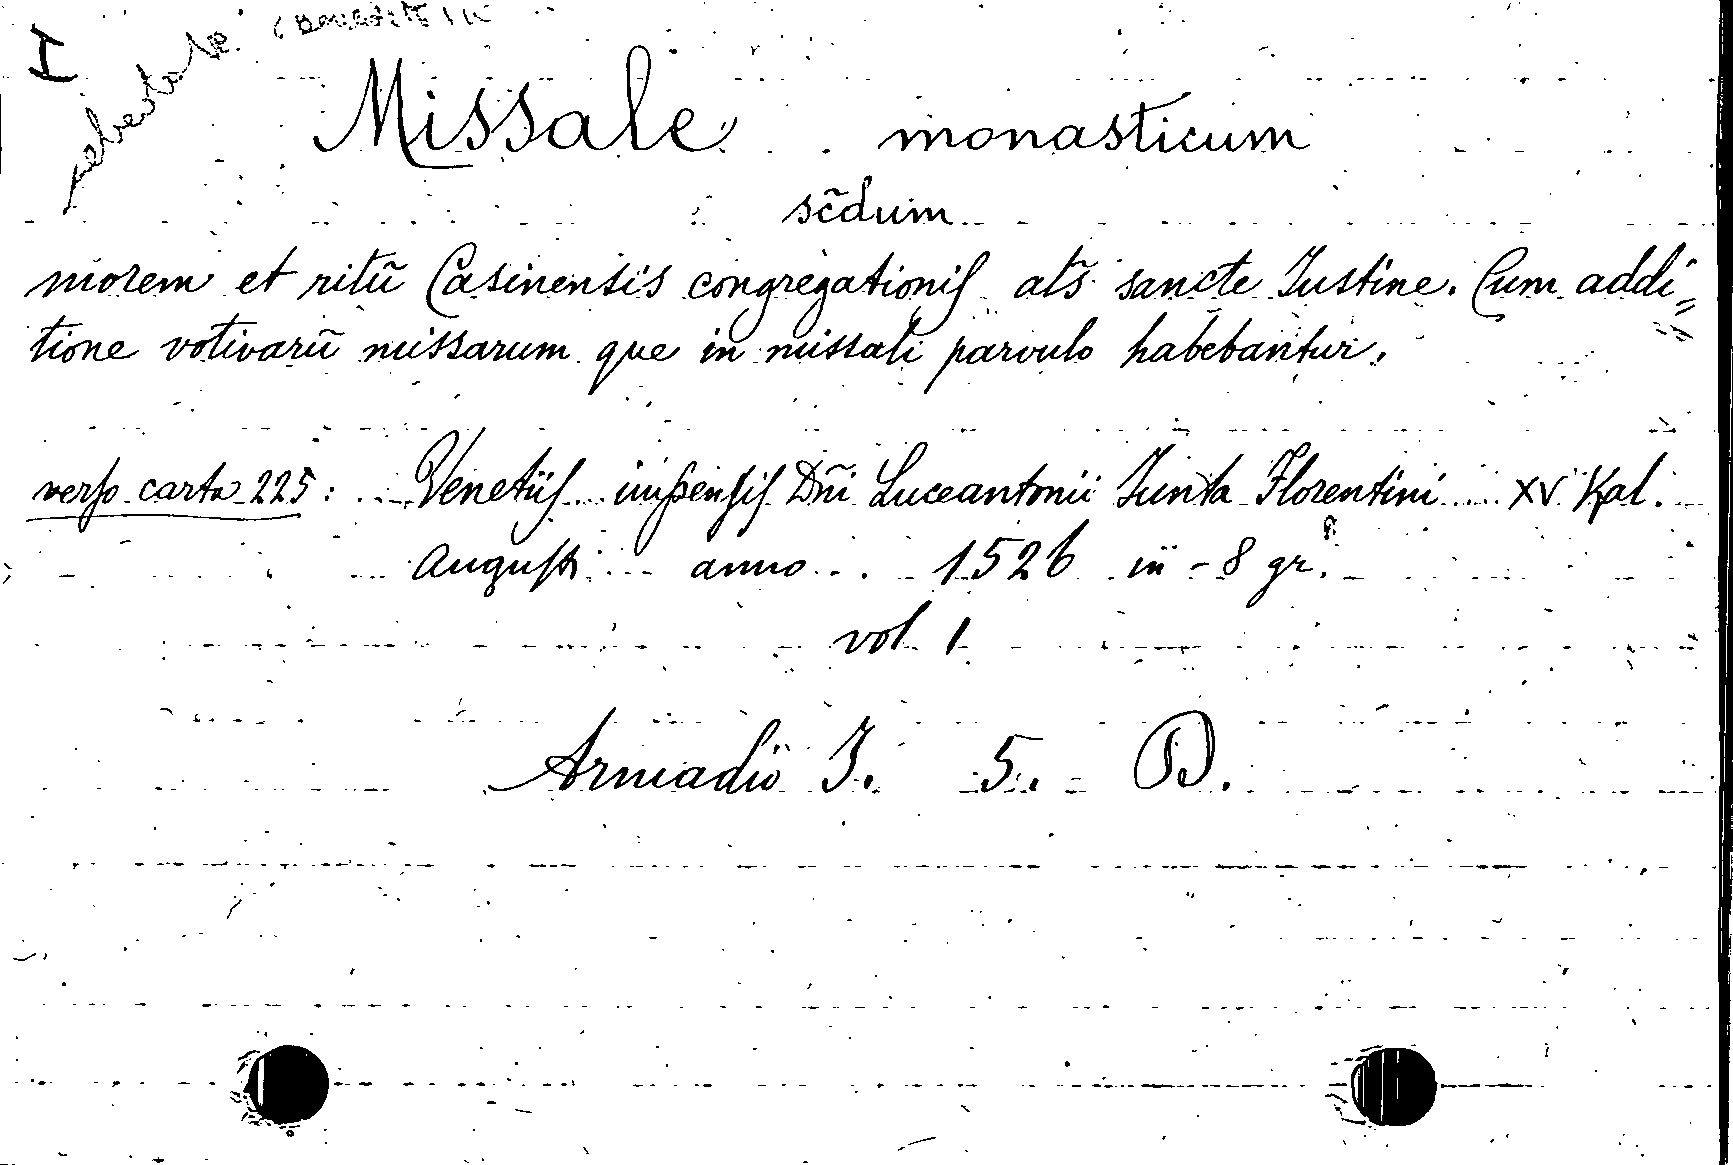 I
Missale monasticum
sc̃dum
morem et ritũ Casinensis congregationis als̃ sancte Iustine. Cum addi=
tione votivarũ missarum que in missali parvulo habebantur.
verso carta 225: Venetiis impensis Dñi Luceantonii Iunta Florentini XV Kal.
Augusti anno 1526 in-8 gr.
vol 1
Armadio I. 5. D.